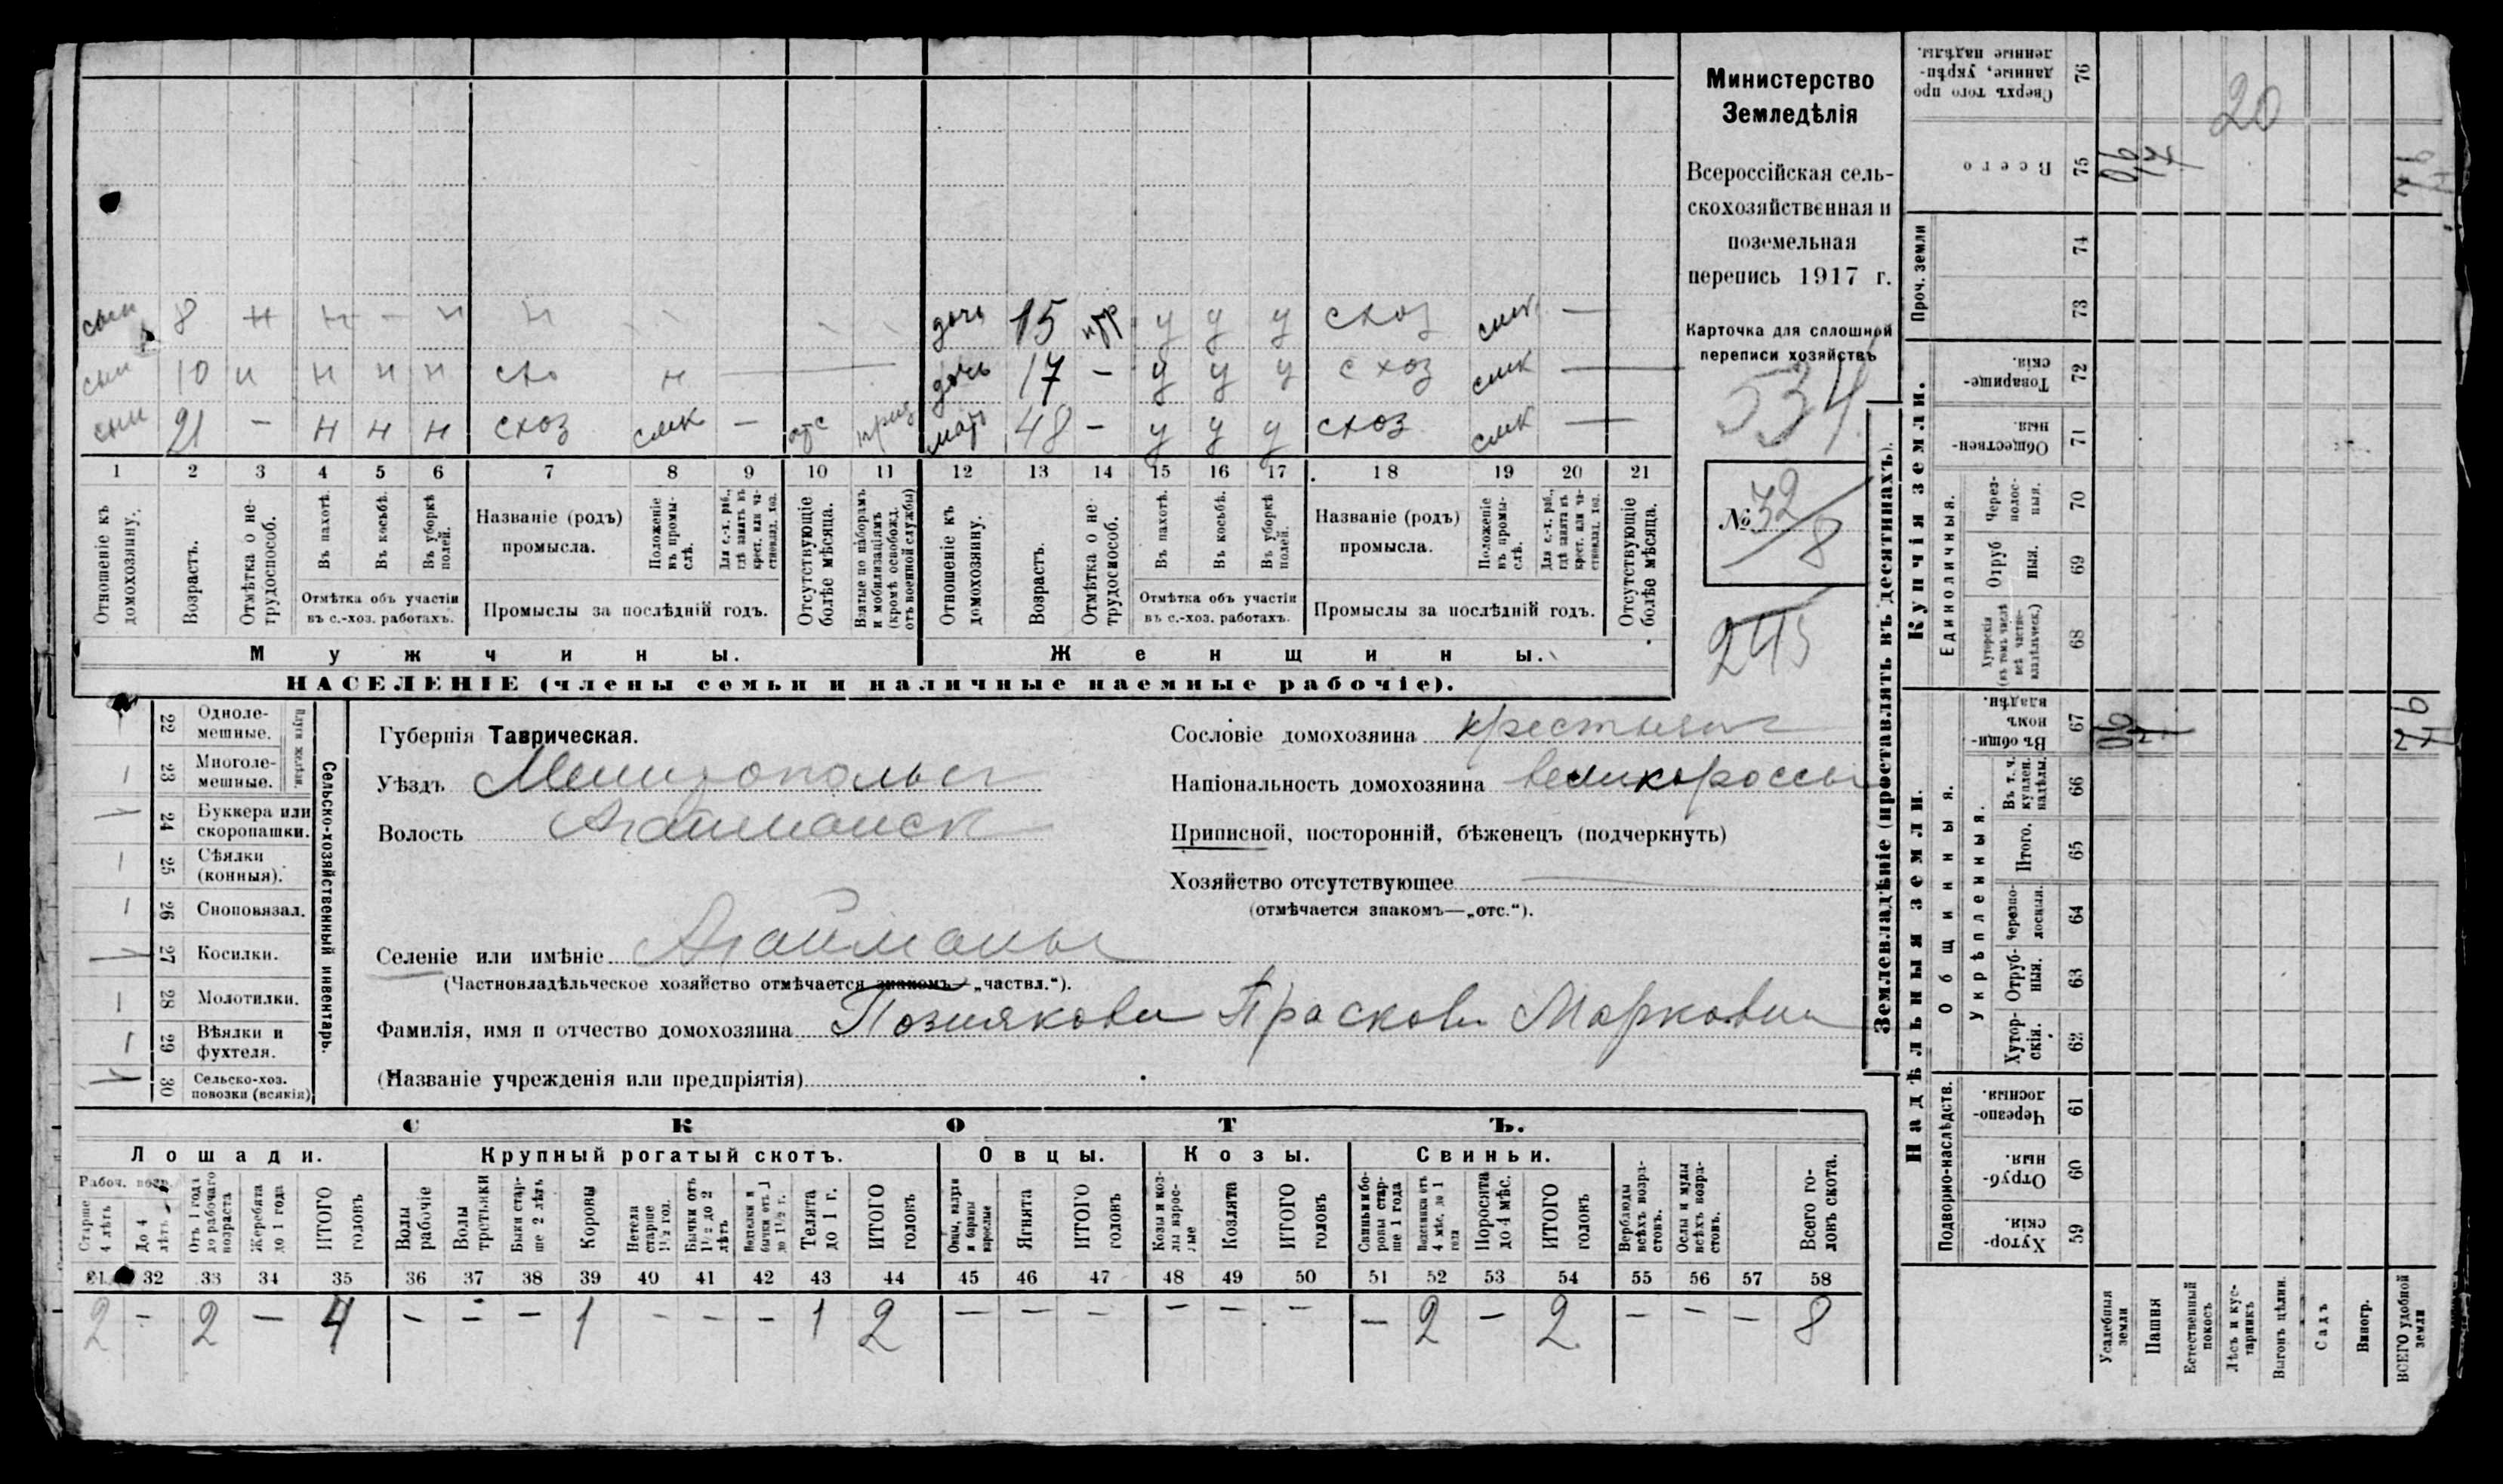 Министерство
Земледѣлія
Всероссійская сель-
скохозяйственная и
поземельная
перепись 1917 г.
Карточка для сплошной
переписи хозяйствъ
534
№ 32/8
245
сын 8 н н - н н
сын 10 н н н н схо н
сын 21 — н н н схоз смк — отс приз
дочь 15 у у у схоз смк —
дочь 17 – у у у схоз смк —
мать 48 – у у у схоз смк —
1 2 3 4 5 6 7 8 9 10 11 12 13 14 15 16 17 18 19 20 21
Отношеніе къ домохозяину.
Возрастъ.
Отмѣтка о не-трудоспособ.
Въ пахотѣ.
Въ косьбѣ.
Въ уборкѣ полей.
Отмѣтка объ участіи
въ с.-хоз. работахъ.
Названіе (родъ)
промысла.
Положеніе въ промы-слѣ.
Для с.-х. раб., гдѣ занятъ въ крест. или ча-стновлад. хоз.
Промыслы за послѣдній годъ.
Отсутствующіе болѣе мѣсяца.
Взятые по наборамъ и мобилизаціямъ (кромѣ освобожд. отъ военной службы)
Отношеніе къ домохозяину.
Возрастъ.
Отмѣтка о не-трудоспособ.
Въ пахотѣ.
Въ косьбѣ.
Въ уборкѣ полей.
Отмѣтка объ участіи
въ с.-хоз. работахъ.
Названіе (родъ)
промысла.
Положеніе въ промы-слѣ.
Для с.-х. раб., гдѣ занята въ крест. или ча-стновлад. хоз.
Промыслы за послѣдній годъ.
Отсутствующіе болѣе мѣсяца.
Мужчины.
Женщины.
НАСЕЛЕНІЕ (члены семьи и наличные наемные рабочіе).
Сельско-хозяйственный инвентарь.
22 Одноле-мешные.
23 Многоле-мешные.
24 Буккера или скоропашки.
25 Сѣялки (конныя).
26 Сноповязал.
27 Косилки.
28 Молотилки.
29 Вѣялки и фухтеля.
30 Сельско-хоз. повозки (всякія)
Губернія Таврическая.
Уѣздъ Мелитопольск
Волость Агайманск
Селеніе или имѣніе Агайманы
(Частновладѣльческое хозяйство отмѣчается знакомъ—„частвл.“).
Фамилія, имя и отчество домохозяина Познякова Прасковья Марковна
(Названіе учрежденія или предпріятія)
Сословіе домохозяина крестьяне
Національность домохозяина великороссы
Приписной, посторонній, бѣженецъ (подчеркнуть)
Хозяйство отсутствующее —
(отмѣчается знакомъ—„отс.“).
СКОТЪ.
Лошади.
Крупный рогатый скотъ.
Овцы.
Козы.
Свиньи.
Рабоч. возр.
Старше 4 лѣтъ
До 4 лѣтъ
Отъ 1 года до рабочаго возраста
Жеребята до 1 года
ИТОГО головъ
Волы рабочіе
Волы третьяки
Быки стар-ше 2 лѣтъ
Коровы
Нетели старше 1½ год.
Бычки отъ 1½ до 2 лѣтъ
Телята до 1 г.
ИТОГО головъ
Овцы, валухи и бараны взрослые
Ягнята
ИТОГО головъ
Козы и коз-лы взрос-лые
Козлята
ИТОГО головъ
Свиньи и бо-ровы стар-ше 1 года
Подсвинки отъ 4 мѣс. до 1 года
Поросята до 4 мѣс.
ИТОГО головъ
Верблюды всѣхъ возра-стовъ.
Ослы и мулы всѣхъ возра-стовъ.
Всего го-ловъ скота.
31 32 33 34 35 36 37 38 39 40 41 42 43 44 45 46 47 48 49 50 51 52 53 54 55 56 57 58
2 – 2 – 4 – – – 1 – – – 1 2 – – – – – – – 2 – 2 – – – 8
Землевладѣніе (проставлять въ десятинахъ).
Купчія земли.
Надѣльныя земли.
Проч. земли
Единоличныя.
Общинныя.
Укрѣпленныя.
Подворно-наслѣдств.
Сверхъ того про-данные, укрѣп-ленные надѣлы. 76
Всего 75
74
73
Товарище-скія. 72
Обществен-ныя. 71
Через-полос-ныя. 70
Отруб-ныя. 69
Хуторскія (въ томъ числѣ всѣ частно-владѣльческ.) 68
Въ общи-номъ владѣн. 67
Въ т. ч. куплен. надѣлы. 66
Итого. 65
Черезпо-лосныя. 64
Отруб-ныя. 63
Хутор-скія. 62
Черезпо-лосныя. 61
Отруб-ныя. 60
Хутор-скія. 59
Усадебныя земли
Пашня
Естественный покосъ
Лѣсъ и кус-тарникъ
Выгонъ цѣлин.
Садъ
Виногр.
ВСЕГО удобной земли
20